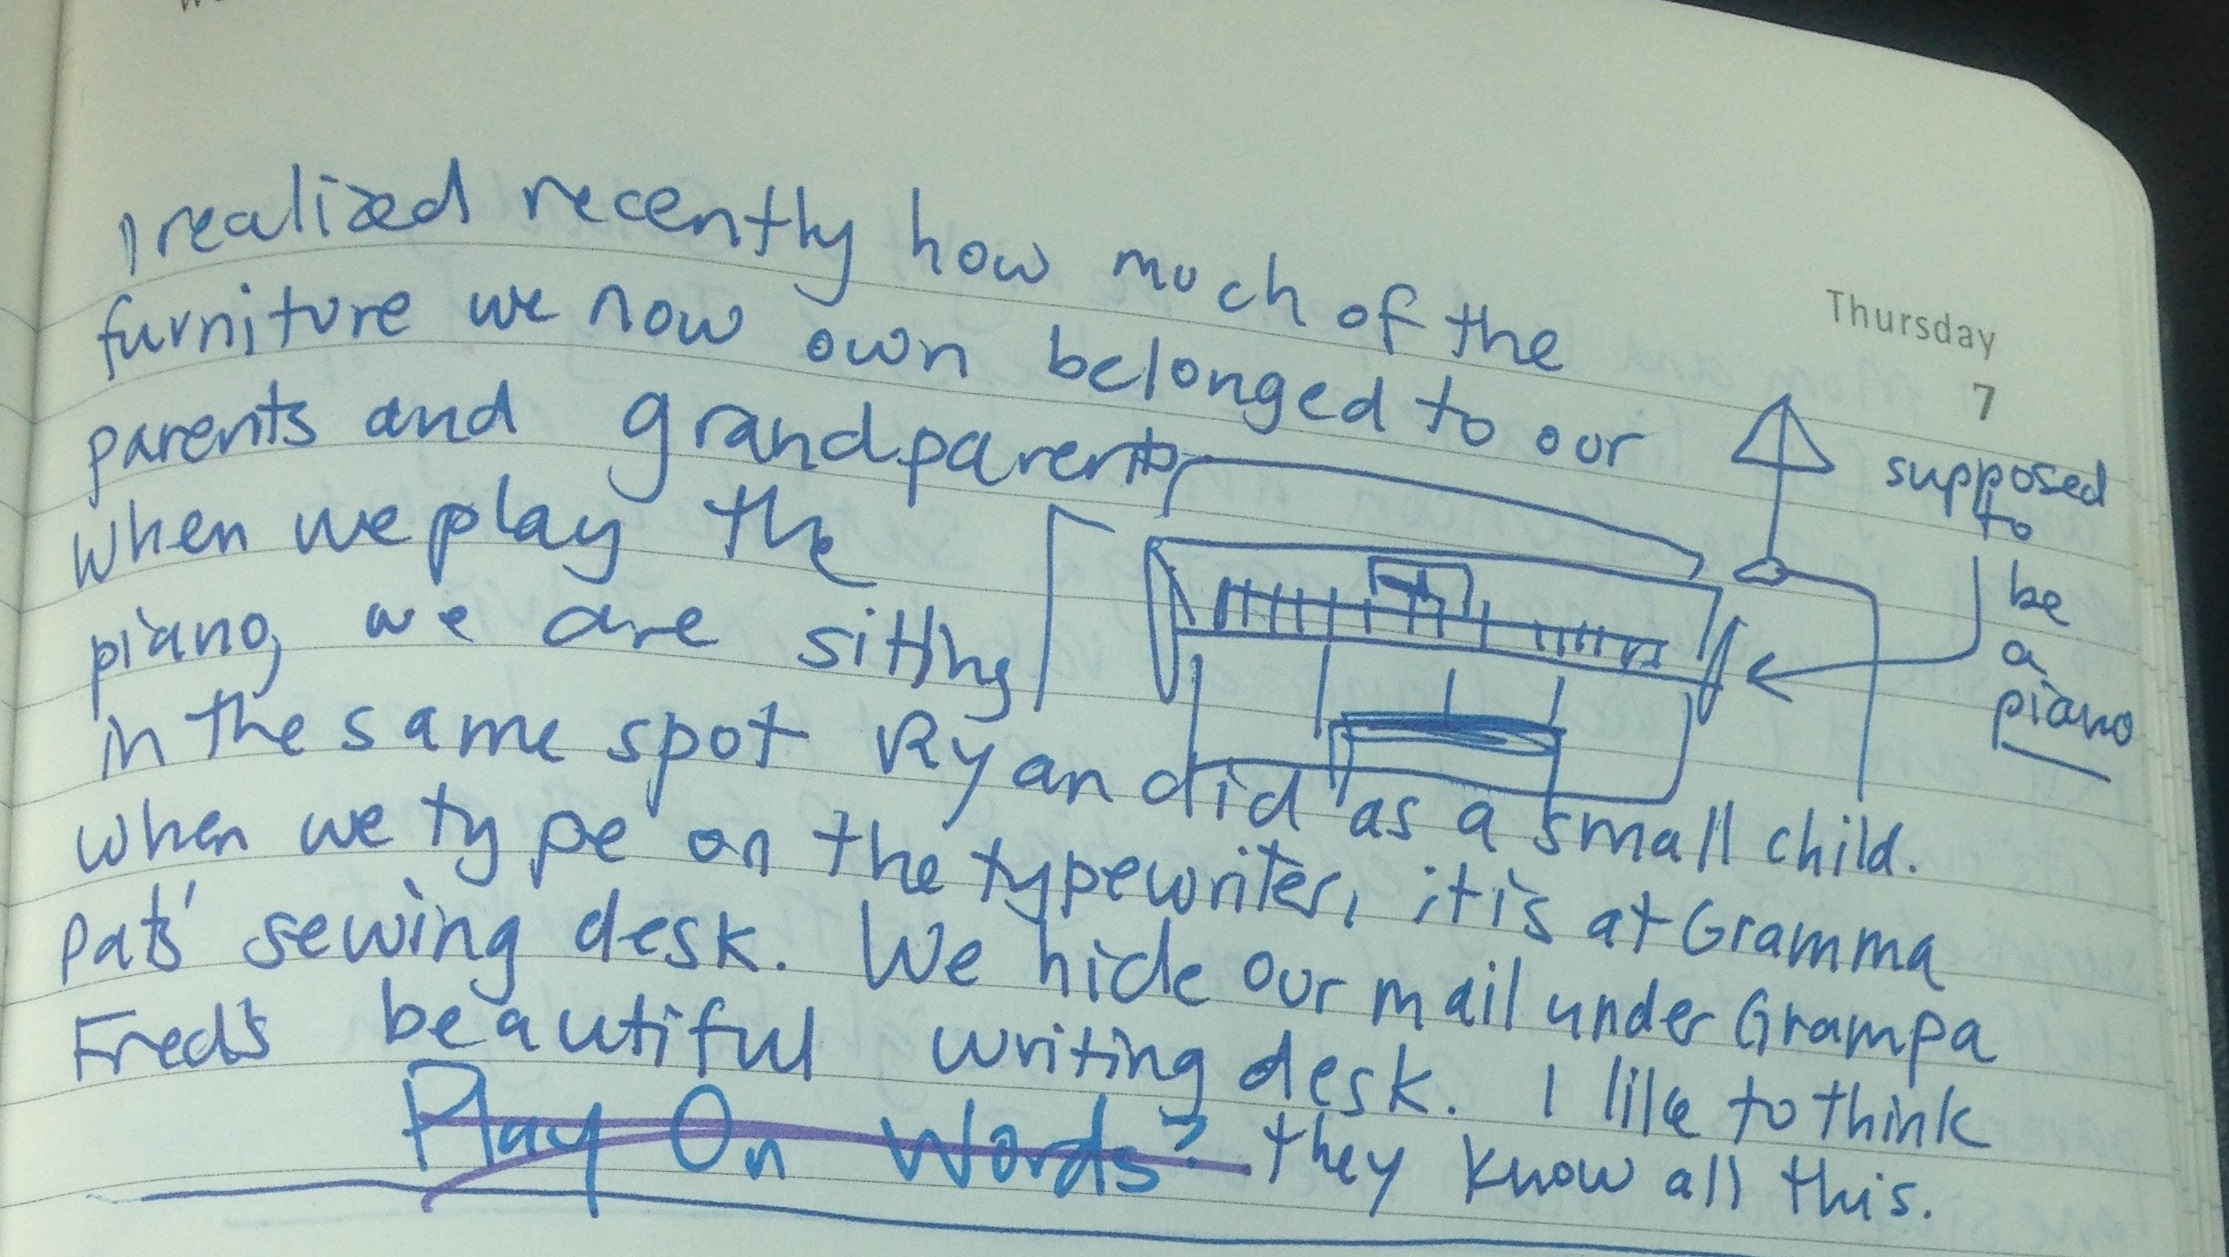 Thursday
7
I realized recently how much of the
furniture we now own belonged to our
parents and grandparents
when we play the
piano, we are sitting
in the same spot Ryan did as a small child.
when we type on the typewriter, it is at Gramma
Pats' sewing desk. We hide our mail under Grampa
Fred's beautiful writing desk. I like to think
they know all this.
Play On Words?
supposed
to
be
a
piano